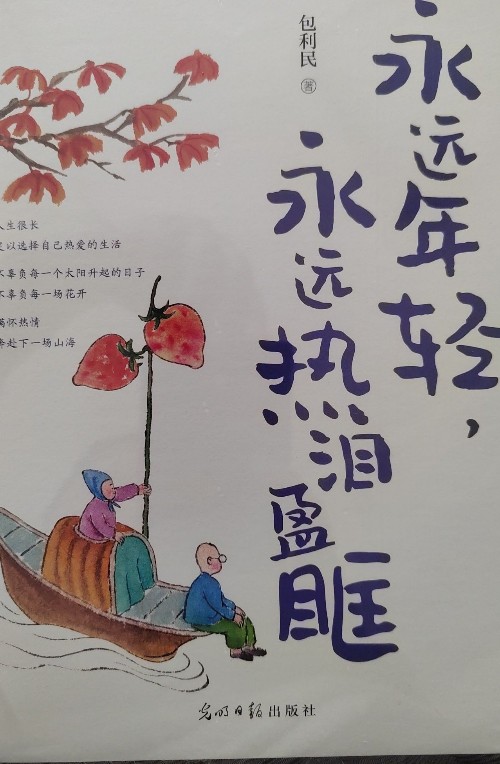 永远年轻，
永远热泪
盈眶
包利民 著
人生很长
足以选择自己热爱的生活
不辜负每一个太阳升起的日子
不辜负每一场花开
满怀热情
奔赴下一场山海
光明日报出版社